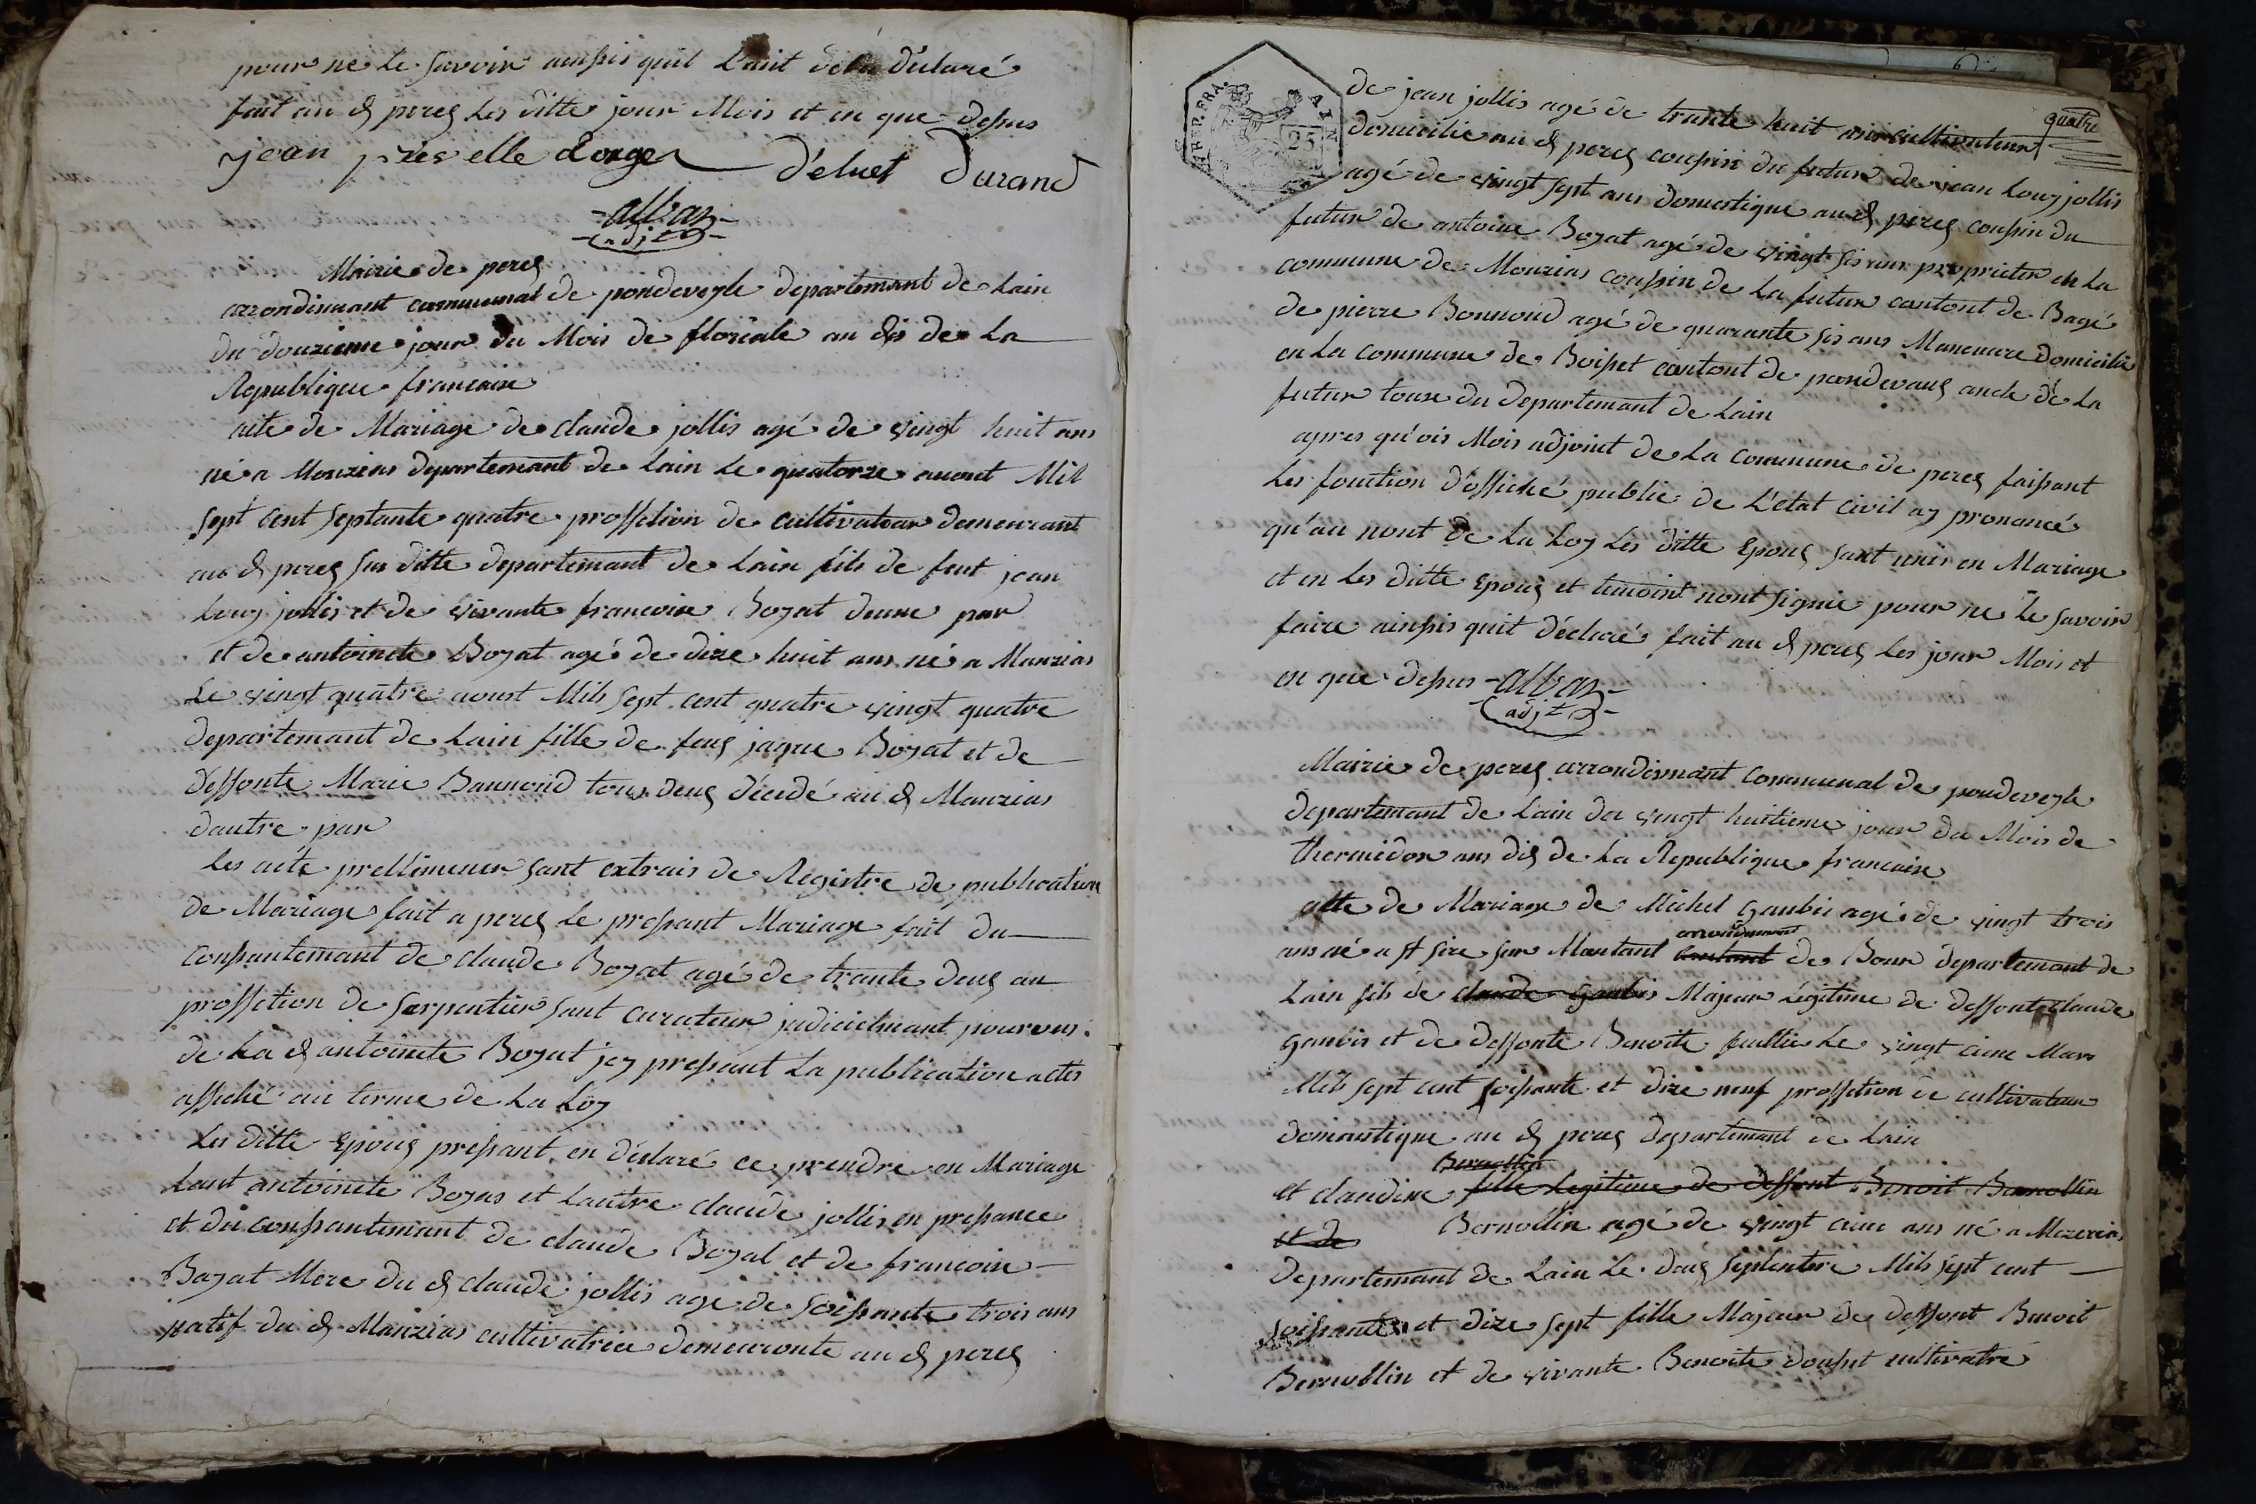 pour ne le savoir ainssis quil L'ant déclaré
fait au d perex les ditte jour Mois et en que dessus
jean pres elle Loage d'eluet Durand
alban
adjt
Mairie de perex
arrondimant communal de pondeveyle departemant de Lain
du douzieme jour du Mois de floréale an dis de La
Republique francaise
acte de Mariage de claude jollis agé de vingt huit ans
né a Manzias departemant de Lain Le quatorze auout Mil
sept cent septante quatre proffetion de cultivateur demeurant
au d perex sus ditte departemant de Lain fils de feut jean
Louy jollis et de vivante francoise Boyat dune par
et de antoinete Boyat agé de dize huit ans né a Manzias
Le vingt quatre aoust Mils sept cent quatre vingt quatre
departemant de Lain fille de feuy jaque Boyat et de
deffonte Marie Bannond tous deux décédé au d Manzias
dautre par
Les acte prellimener sant extrais de Registre de publication
de Mariage fait a perex Le pressant Mariage fait du
conssantemant de claude Boyat agé de trante deux an
proffetion de serpentier sant curateur judicielmant pourvus
de La d antoinete Boyat jey pressant La publication actes
affiché au terme de La Loy
Les ditte Epoux pressant en déclaré ce prendre en Mariage
Lant antoinete Boyas et Lautre claude jollis en pressance
et du conssantemant de claude Boyat et de francoise
Bayat Mere du d claude jollis agé de soissante trois ans
natif du d Manzias cultivatrice demeuronte au d perex
quatre
25
de jean jollis agé de trante huit ans cultivateur
domicilie au d perex coussin du futur de jean Louy jollis
agé de vingt sept ans domestique au d perex coussin du
futur de antoine Boyat agé de vingt sis ans proprieter en La
commune de Monzias coussin de La futur cantont de Bagé
de pierre Bonnond agé de quarante sis ans Maneuvre Domicilié
en La commune de Boisset cantont de pondevaux oncle de La
futur toux du departemant de Lain
apres qu'ois Mois adjoint de La commune de perex faissant
Les fonction d'offiché public de L'état civil ay prononcé
qu'au nont de La Loy Les ditte Epoux sant unis en Mariage
et en Les ditte Epoux et temoint nont signie pour ne Le savoir
faire ainssis quit déclaré fait au d perex Les jour Mois et
en que dessus alban
adjt
Mairie de perex arrondimant communal de pondeveyle
departemant de Lain du vingt huitieme jour du Mois de
thermidor ans dix de La Republique francaise
atte de Mariage de Michel Gaubis agé de vingt trois
arrondimant
ans né a st sire sur Mantant cantont de Bour departemant de
Lain fils de claude Gaubis Majeur Légitime de deffont claude
Gaubis et de deffonte Benoite Le vingt cinc Mars
Mils sept cent soissante et dize neuf proffetion de cultivateur
domestique au d perex departemant de Lain
Bernollin
et claudine fille Legitime de deffont Benoit Bernollin
et de Bernollin agé de vingt cinc ans né a Mezerias
departemant de Lain Le deux septentre Mils sept cent
soissante et dize sept fille Majeur de deffont Benoit
Bernollin et de vivante Benoite cultivatré